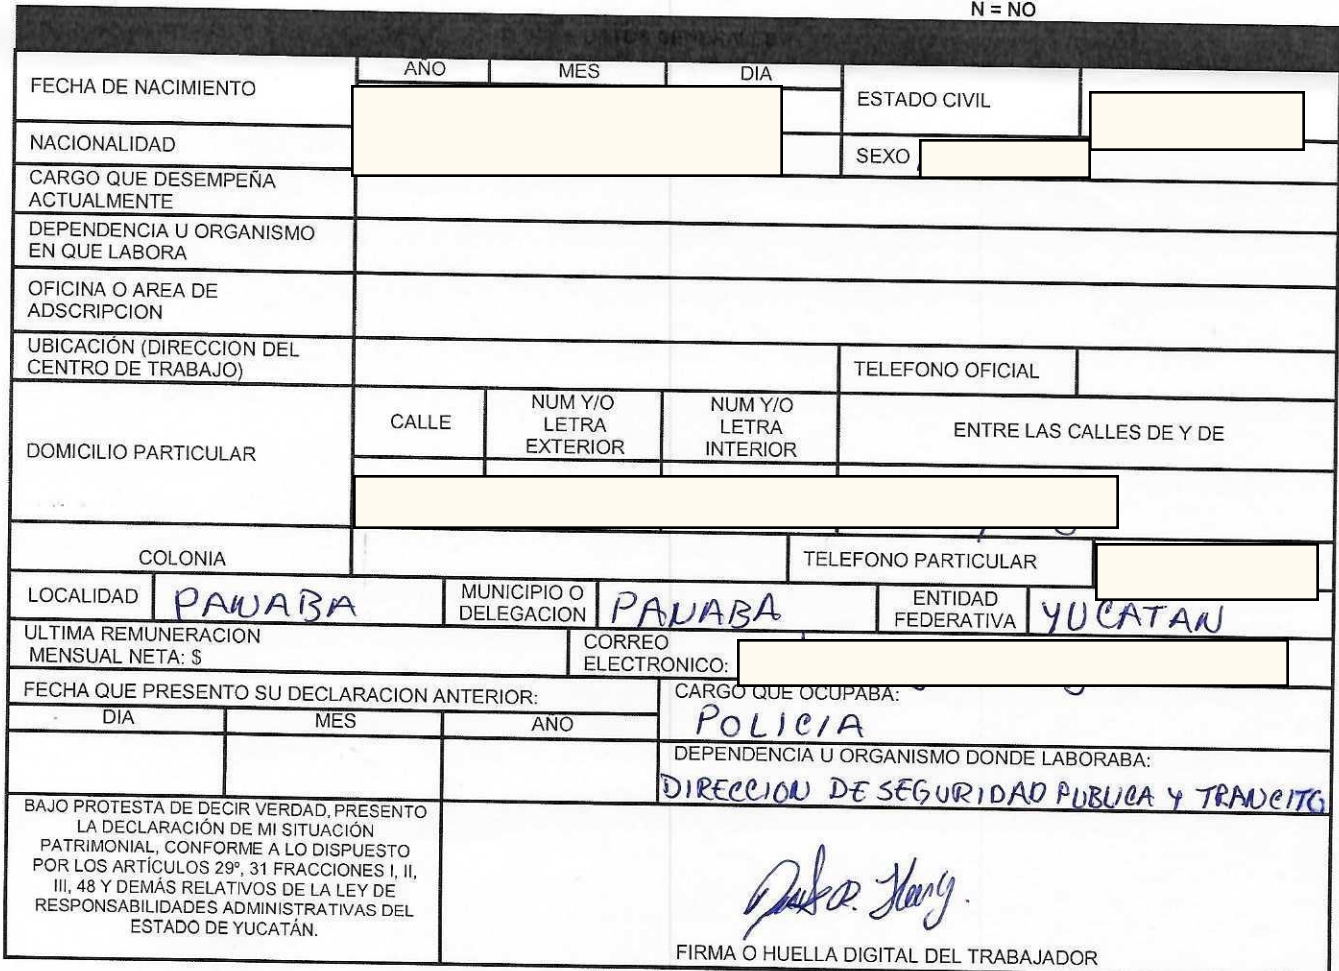 N = NO
FECHA DE NACIMIENTO
AÑO MES DIA
ESTADO CIVIL
NACIONALIDAD
SEXO
CARGO QUE DESEMPEÑA
ACTUALMENTE
DEPENDENCIA U ORGANISMO
EN QUE LABORA
OFICINA O AREA DE
ADSCRIPCION
UBICACIÓN (DIRECCION DEL
CENTRO DE TRABAJO)
TELEFONO OFICIAL
DOMICILIO PARTICULAR
CALLE
NUM Y/O
LETRA
EXTERIOR
NUM Y/O
LETRA
INTERIOR
ENTRE LAS CALLES DE Y DE
COLONIA
TELEFONO PARTICULAR
LOCALIDAD PANABA
MUNICIPIO O
DELEGACION PANABA
ENTIDAD
FEDERATIVA YUCATAN
ULTIMA REMUNERACION
MENSUAL NETA: $
CORREO
ELECTRONICO:
FECHA QUE PRESENTO SU DECLARACION ANTERIOR:
DIA MES AÑO
CARGO QUE OCUPABA:
POLICIA
DEPENDENCIA U ORGANISMO DONDE LABORABA:
DIRECCION DE SEGURIDAD PUBLICA Y TRANCITO
BAJO PROTESTA DE DECIR VERDAD, PRESENTO
LA DECLARACIÓN DE MI SITUACIÓN
PATRIMONIAL, CONFORME A LO DISPUESTO
POR LOS ARTÍCULOS 29º, 31 FRACCIONES I, II,
III, 48 Y DEMÁS RELATIVOS DE LA LEY DE
RESPONSABILIDADES ADMINISTRATIVAS DEL
ESTADO DE YUCATÁN.
FIRMA O HUELLA DIGITAL DEL TRABAJADOR